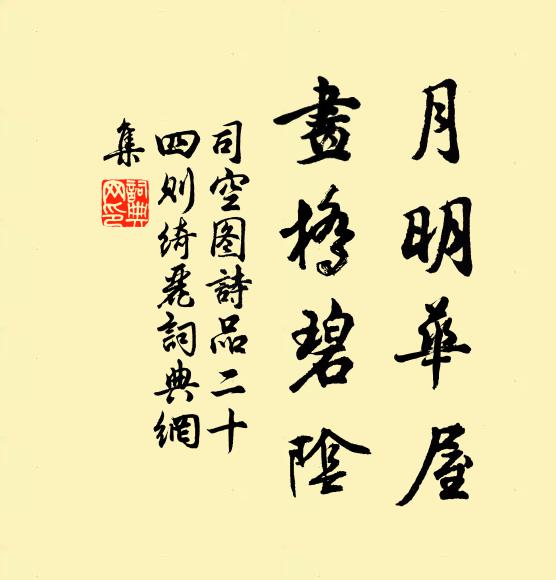 月明華屋
畫橋碧陰
司空图詩品二十
四则绮麗詞典網
集
詞典網印